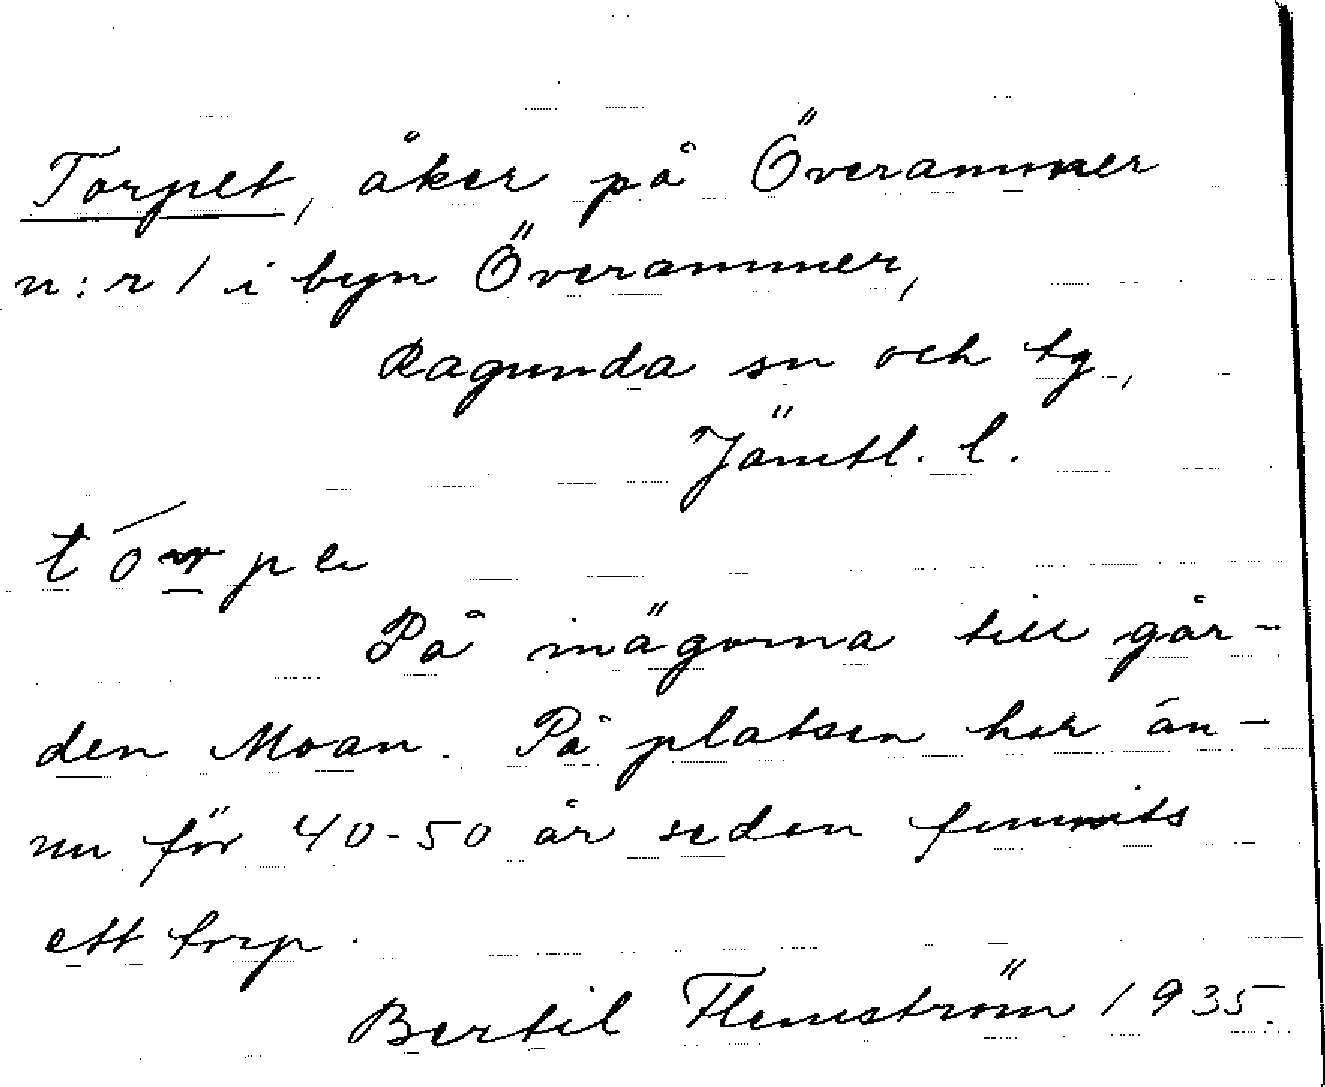 Torpet, åker på Överammer
n:r 1 i byn Överammer,
Ragunda sn och tg,
Jämtl. l.
På inägorna till går-
den Moan. På platsen har än-
nu för 40-50 år sedan funnits
ett torp.
Bertil Flemström 1935.